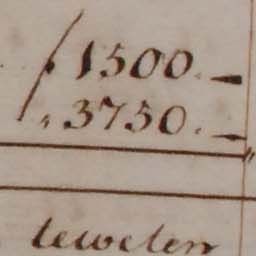 1500.-
3750.-
lewelen